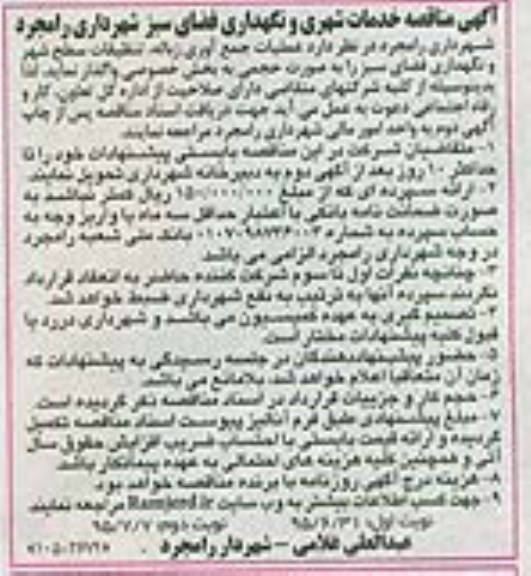 آگهی مناقصه خدمات شهری و نگهداری فضای سبز شهرداری رامجرد
شهرداری رامجرد در نظر دارد عملیات جمع آوری زباله، تنظیفات سطح شهر
و نگهداری فضای سبز را به صورت حجمی به بخش خصوصی واگذار نماید. لذا
بدینوسیله از کلیه شرکتهای متقاضی دارای صلاحیت از اداره کل تعاون، کار و
رفاه اجتماعی دعوت به عمل می آید جهت دریافت اسناد مناقصه پس از چاپ
آگهی دوم به واحد امور مالی شهرداری رامجرد مراجعه نمایند.
۱- متقاضیان شرکت در این مناقصه بایستی پیشنهادات خود را تا
حداکثر ۱۰ روز بعد از آگهی دوم به دبیرخانه شهرداری تحویل نمایند.
۲- ارائه سپرده ای که از مبلغ ۱۵۰/۰۰۰/۰۰۰ ریال کمتر نباشد به
صورت ضمانت نامه بانکی با اعتبار حداقل سه ماه یا واریز وجه به
حساب سپرده به شماره بانک ملی شعبه رامجرد
در وجه شهرداری رامجرد الزامی می باشد.
۳- چنانچه نفرات اول تا سوم شرکت کننده حاضر به انعقاد قرارداد
نگردند سپرده آنها به ترتیب به نفع شهرداری ضبط خواهد شد.
۴- تصمیم گیری به عهده کمیسیون می باشد و شهرداری در رد یا
قبول کلیه پیشنهادات مختار است.
۵- حضور پیشنهاددهندگان در جلسه رسیدگی به پیشنهادات که
زمان آن متعاقبا اعلام خواهد شد، بلامانع می باشد.
۶- حجم کار و جزییات قرارداد در اسناد مناقصه ذکر گردیده است.
۷- مبلغ پیشنهادی طبق فرم آنالیز پیوست اسناد مناقصه تکمیل
گردیده و ارائه قیمت بایستی با احتساب ضریب افزایش حقوق سال
آتی و همچنین کلیه هزینه های احتمالی به عهده پیمانکار باشد.
۸- هزینه درج آگهی روزنامه با برنده مناقصه خواهد بود.
۹- جهت کسب اطلاعات بیشتر به وب سایت Ramjerd.ir مراجعه نمایند.
نوبت اول: ۹۵/۶/۳۱ نوبت دوم: ۹۵/۷/۷
عبدالعلی غلامی - شهردار رامجرد